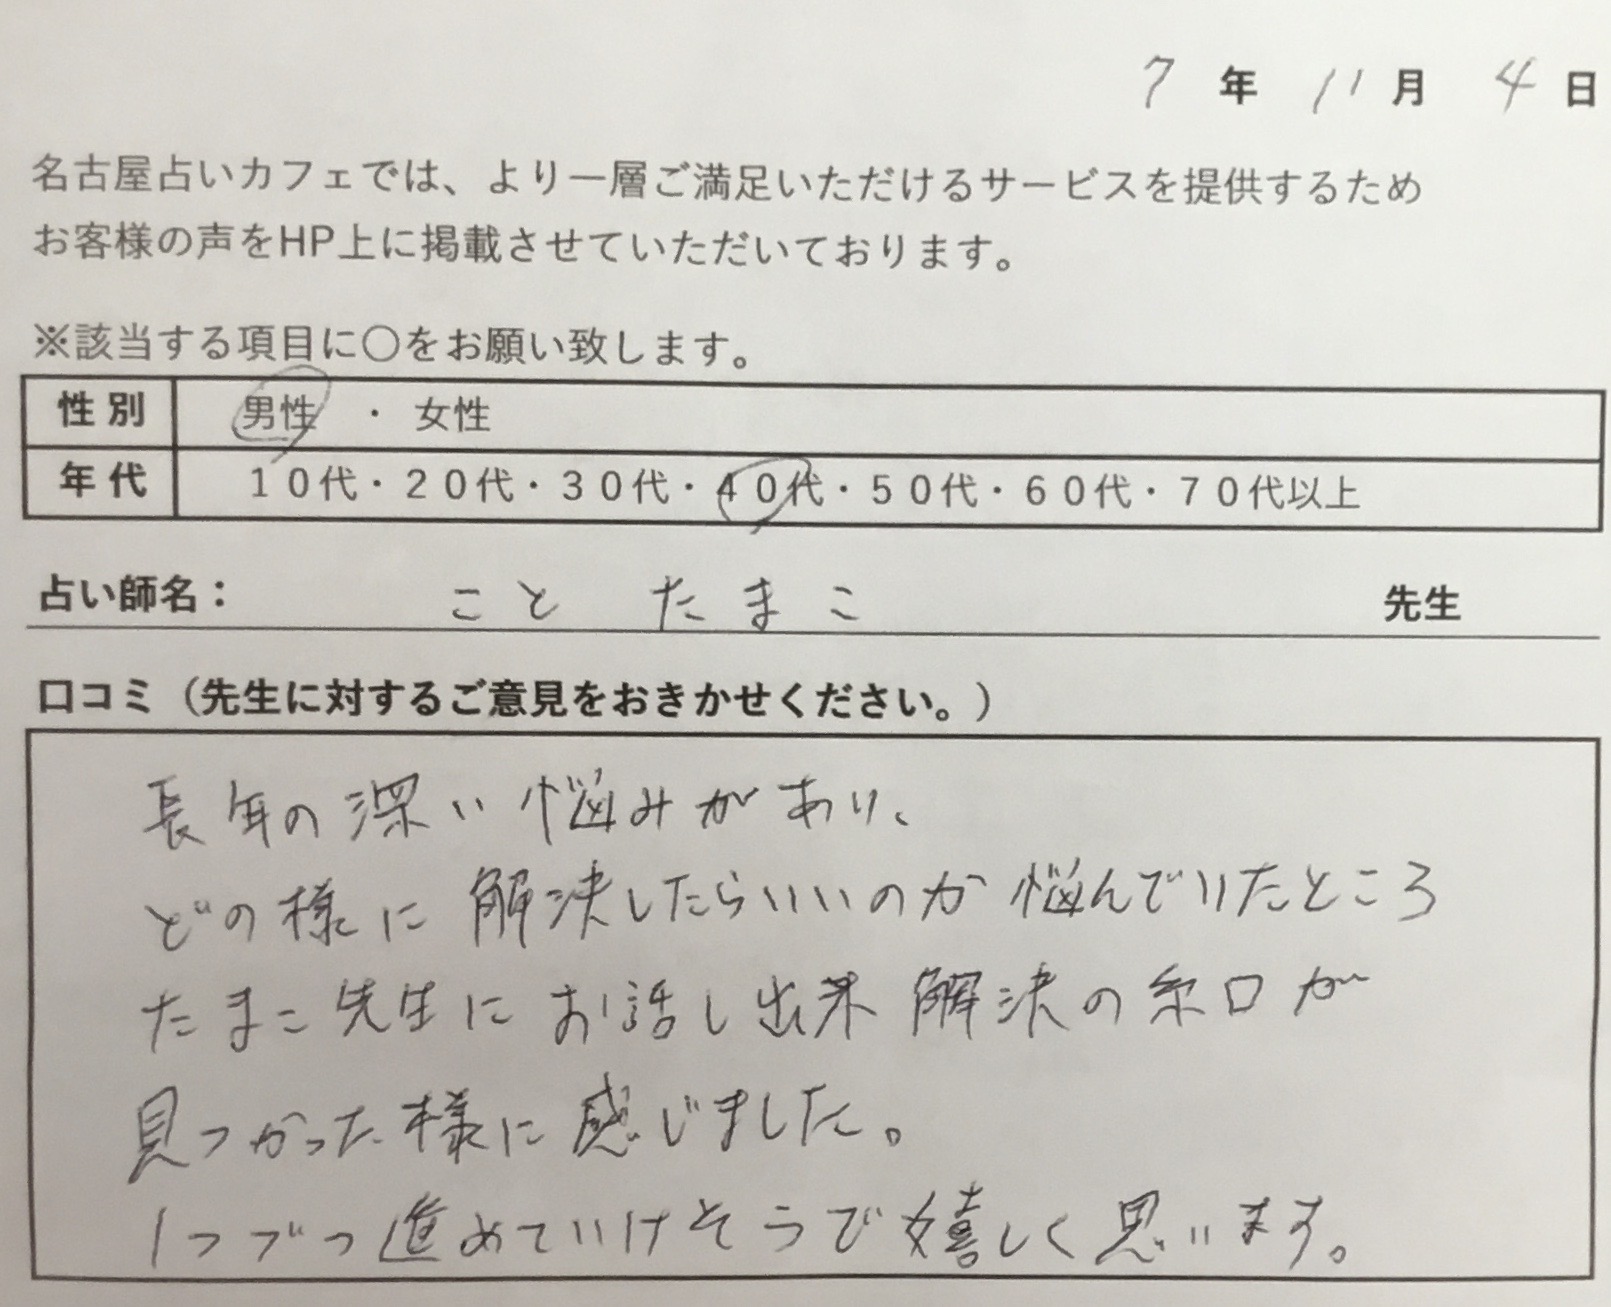 7 年 11 月 4 日
名古屋占いカフェでは、より一層ご満足いただけるサービスを提供するため
お客様の声をHP上に掲載させていただいております。
※該当する項目に〇をお願い致します。
性別 男性 ・ 女性
年代 10代・20代・30代・40代・50代・60代・70代以上
占い師名： こと たまこ 先生
口コミ（先生に対するご意見をおきかせください。）
長年の深い悩みがあり、
どの様に解決したらいいのか悩んでいたところ
たまこ先生にお話し出来解決の糸口が
見つかった様に感じました。
1つづつ進めていけそうで嬉しく思います。